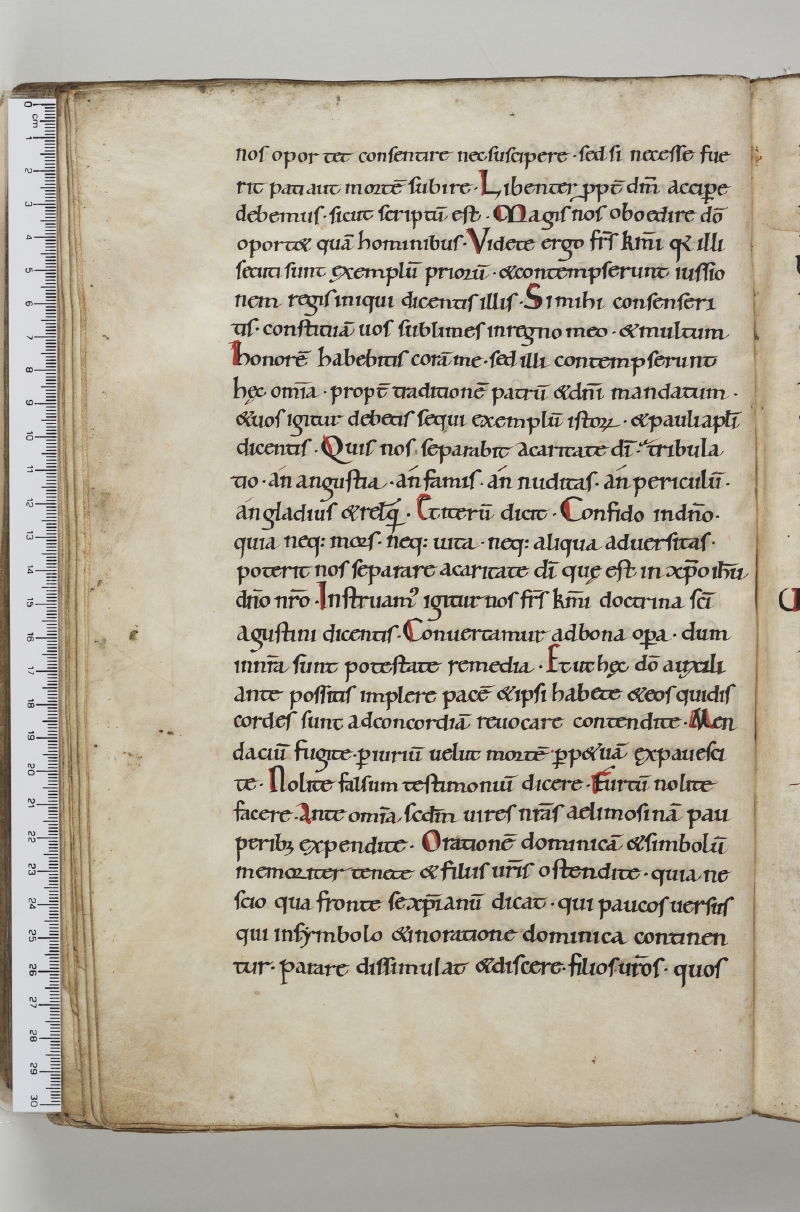 nos oportet consentire nec suscipere · sed si necesse fue
rit pati aut mortē subire · Libenter ꝓpt̄ dm̄ accipe
debemus · sicut scriptū est · Magis nos oboedire dō
oport& quā hominibus · Videte ergo fr̄s km̄i qa illi
secuti sunt exemplū priorū · & contempserunt iussio
nem regis iniqui dicentis illis · Si mihi consenseri
tis · constituā uos sublimes in regno meo · & multum
honorē habebitis corā me · sed illi contempserunt
hęc omīa · propt̄ traditionē patrū & dn̄i mandatum ·
& uos igitur debetis sequi exemplū istoꝝ · & pauli apl̄i
dicentis · Quis nos separabit a caritate dī · tribula
tio · an angustia · an famis · an nuditas · an periculū ·
an gladius & relq̄ · Et iterū dicit · Confido in dn̄o ·
quia neq: mors · neq: uita · neq: aliqua aduersitas ·
poterit nos separare a caritate dī que est in xp̄o ihū
dn̄o nr̄o · Instruam᾿ igitur nos fr̄s km̄i doctrina sc̄i
agustini dicentis · Conuertamur ad bona opa · dum
in nrīa sunt potestate remedia · Et ut hęc dō auxili
ante possitis implere pacē & ipsi habete & eos qui dis
cordes sunt ad concordiā reuocare contendite · Men
daciū fugite · ꝑiuriū uelut mortē ꝑp&uā expauesci
te · Nolite falsum testimoniū dicere · Furtū nolite
facere · Ante omīa scdm̄ uires nr̄as aelimosinā pau
peribꝫ expendite · Orationē dominicā & simbolū
memoriter tenete & filiis ur̄is ostendite · quia ne
scio qua fronte se xp̄ianū dicat · qui paucos uersus
qui in symbolo & in oratione dominica continen
tur · parare dissimulat & discere · filios ur̄os · quos